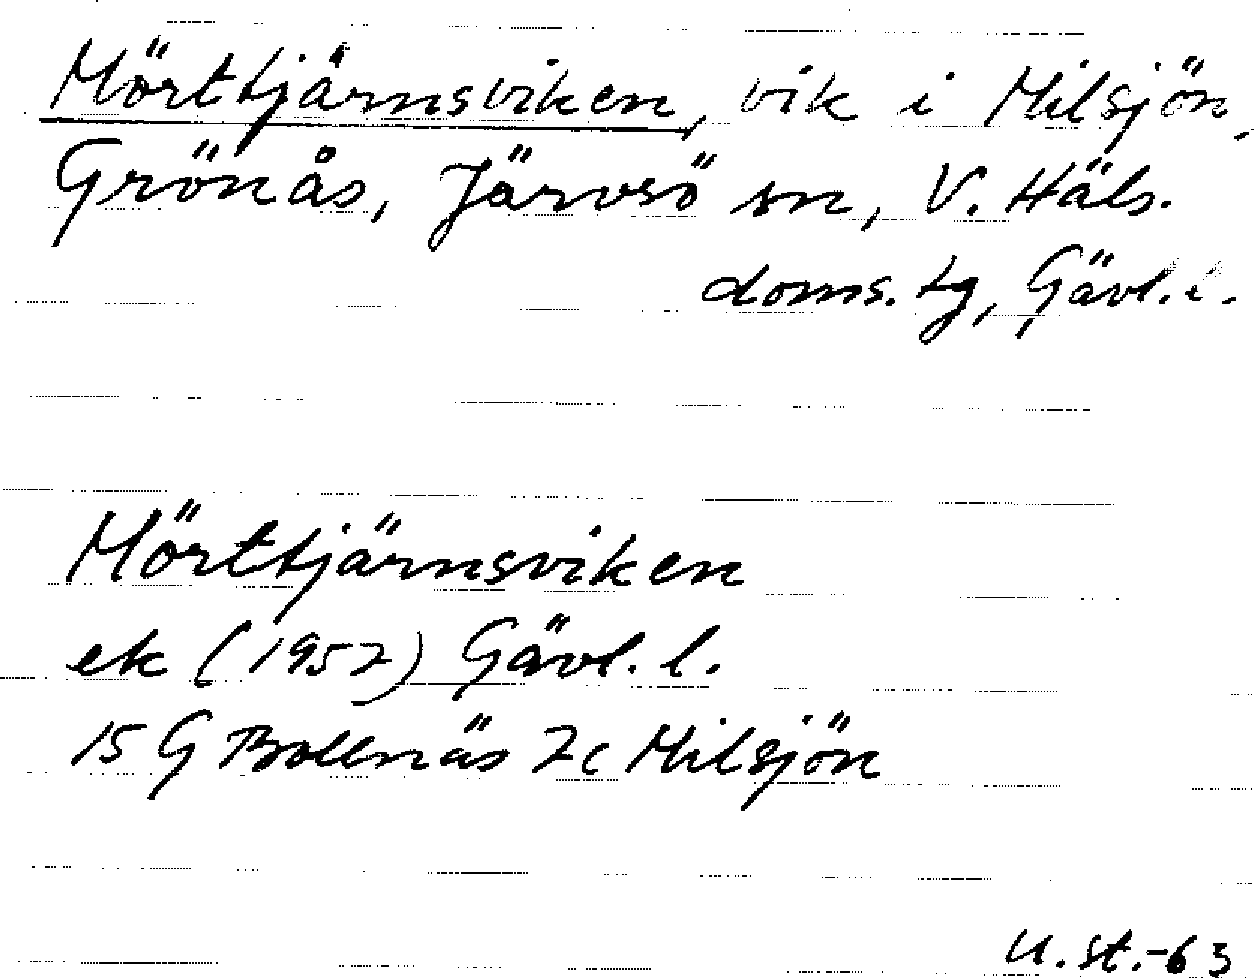 Mörttjärnsviken, vik i Milsjön,
Grönås, Järvsö sn, V. Häls.
doms. tg, Gävl. l.
Mörttjärnsviken
ek (1957) Gävl. l.
15 G Bollnäs 7c Milsjön
U. St. -63